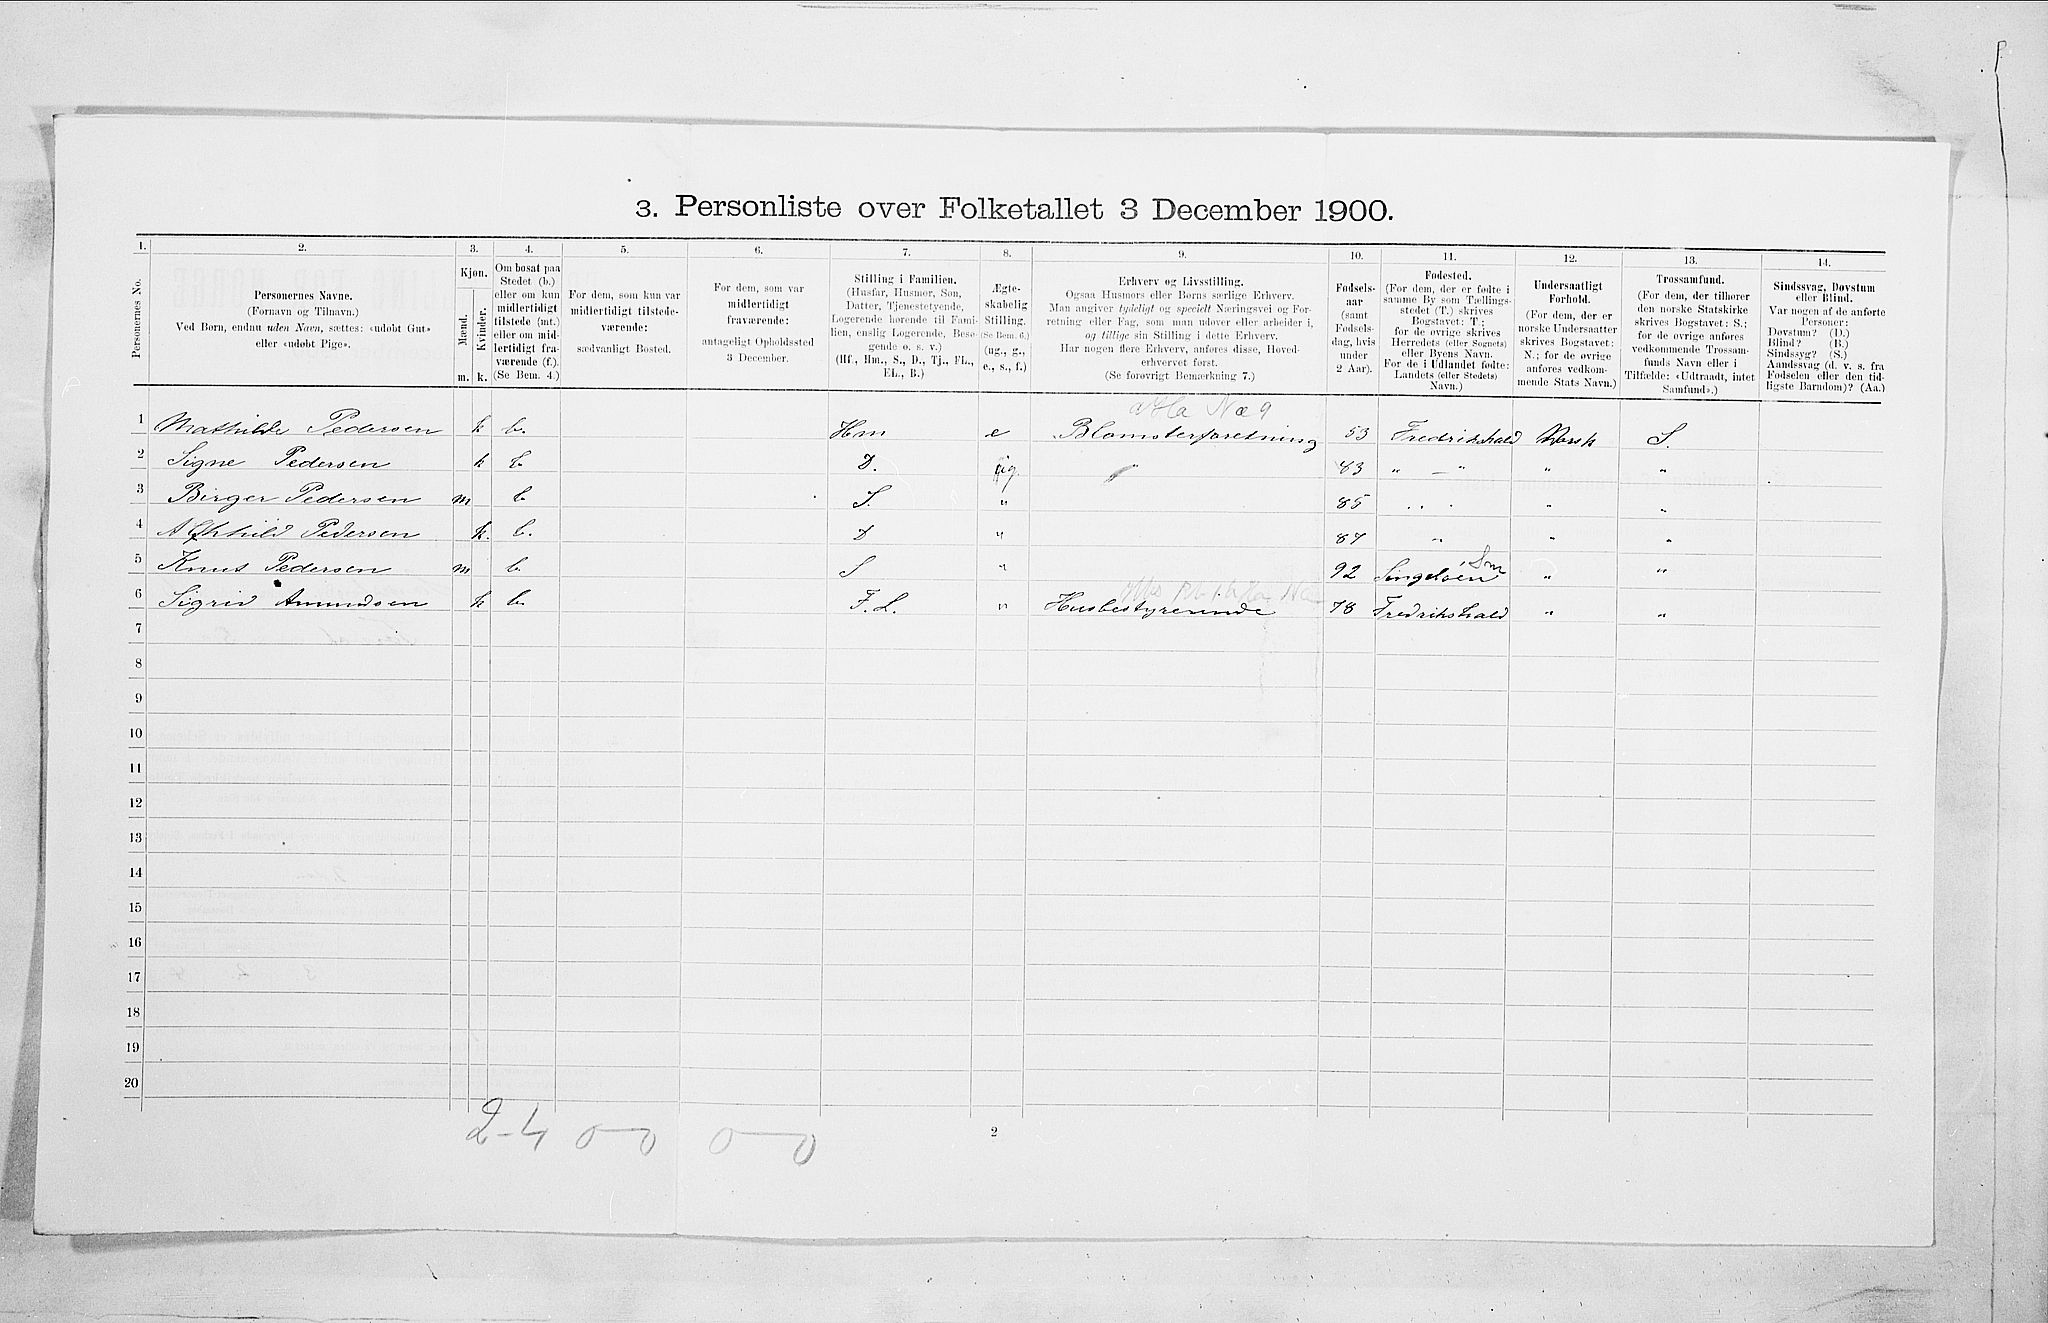 3. Personliste over Folketallet 3 December 1900.
1. 2. 3. 4. 5. 6. 7. 8. 9. 10. 11. 12. 13. 14.
Personernes No.
Personernes Navne.
(Fornavn og Tilnavn.)
Ved Børn, endnu uden Navn, sættes: «udøbt Gut»
eller «udøbt Pige».
Kjøn.
Mænd. Kvinder.
m. k.
Om bosat paa
Stedet (b.)
eller om kun
midlertidigt
tilstede (mt.)
eller om mid-
lertidigt fra-
værende (f.).
(Se Bem. 4.)
For dem, som kun var
midlertidigt tilstede-
værende:
sædvanligt Bosted.
For dem, som var
midlertidigt
fraværende:
antageligt Opholdssted
3 December.
Stilling i Familien.
(Husfar, Husmor, Søn,
Datter, Tjenestetyende,
Logerende hørende til Fami-
lien, enslig Logerende, Besø-
gende o. s. v.)
(Hf., Hm., S., D., Tj., FL.,
EL., B.)
Ægte-
skabelig
Stilling.
(Se Bem. 6.)
(ug., g.,
e., s., f.)
Erhverv og Livsstilling.
Ogsaa Husmors eller Børns særlige Erhverv.
Man angiver tydeligt og specielt Næringsvei og For-
retning eller Fag, som man udøver eller arbeider i,
og tillige sin Stilling i dette Erhverv.
Har nogen flere Erhverv, anføres disse, Hoved-
erhvervet først.
(Se forøvrigt Bemærkning 7.)
Fødsels-
aar
(samt
Fødsels-
dag, hvis
under
2 Aar).
Fødested.
(For dem, der er fødte i
samme By som Tællings-
stedet (T.) skrives
Bogstavet: T.;
for de øvrige skrives
Herredets (eller Sognets)
eller Byens Navn.
For de i Udlandet fødte:
Landets (eller Stedets)
Navn.)
Undersaatligt
Forhold.
(For dem, der er
norske Undersaatter
skrives Bogstavet:
N.; for de øvrige
anføres vedkom-
mende Stats Navn.)
Trossamfund.
(For dem, der tilhører
den norske Statskirke
skrives Bogstavet: S.;
for de øvrige anføres
vedkommende Trossam-
funds Navn eller i
Tilfælde: «Udtraadt, intet
Samfund».)
Sindssvag, Døvstum
eller Blind.
Var nogen af de anførte
Personer:
Døvstum? (D.)
Blind? (B.)
Sindssyg? (S.)
Aandssvag (d. v. s. fra
Fødselen eller den tid-
ligste Barndom)? (Aa.)
1 Mathilde Pedersen k b. Hm e Blomsterforetning 53 Fredrikshald Norsk S.
2 Signe Pedersen k b. D. ug. " 83 " — " " "
3 Birger Pedersen m b. S. " 85 " " "
4 Pedersen k. b. D " 87 " " "
5 Knut Pedersen m b. S " 92 " "
6 Sigrid Amundsen k b. F. L. " Husbestyrerinde 78 Fredrikshald " "
7
8
9
10
11
12
13
14
15
16
17
18
19
20
2-4 0—0 0—0
2